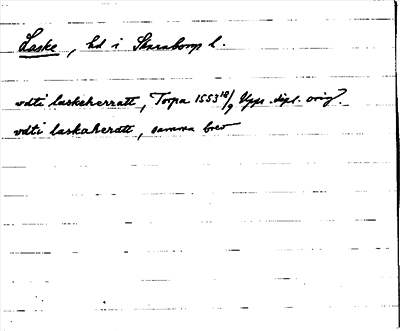 Laske, hd i Skaraborgs l.
vdti laskeherratt, Torpa 1553 18/9 Upps. dipl. orig?
vdti laskaheratt, samma brev